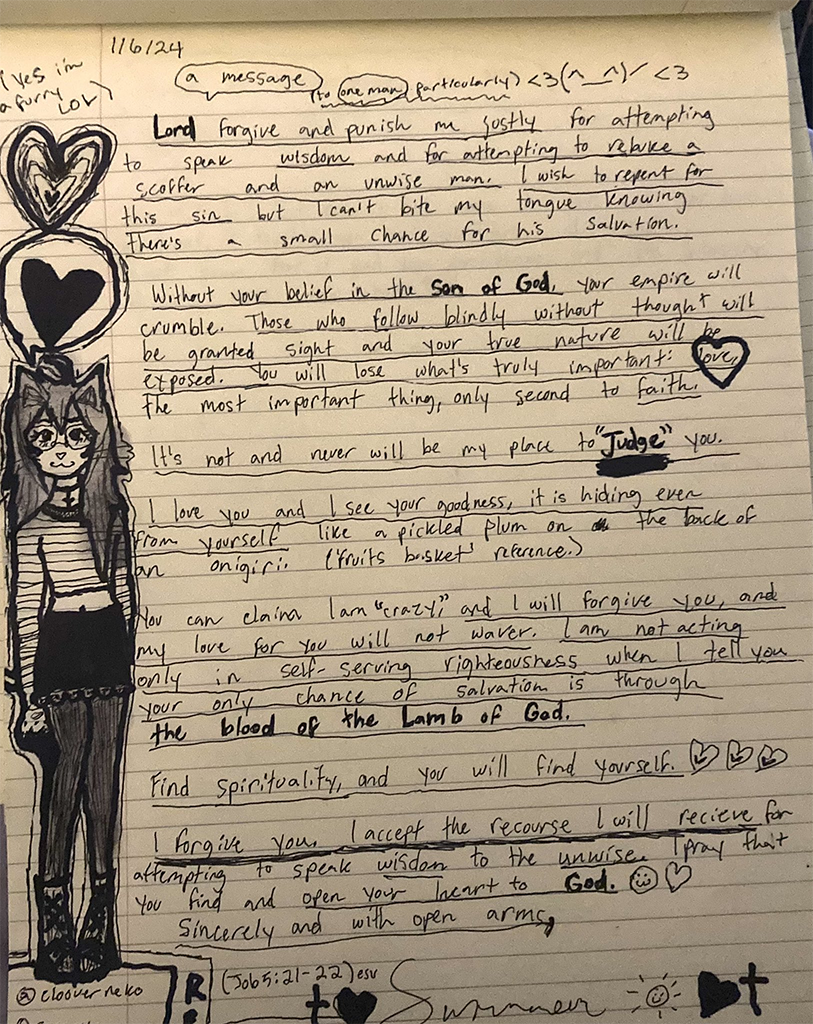 1/6/24
(Yes i'm
a furry
LOL)
a message
(to one man particularly) <3(^__^)/ <3
Lord forgive and punish me justly for attempting
to speak wisdom and for attempting to rebuke a
scoffer and an unwise man. I wish to repent for
this sin but I can't bite my tongue knowing
there's a small chance for his salvation.
Without your belief in the Son of God, your empire will
crumble. Those who follow blindly without thought will
be granted sight and your true nature will be
exposed. You will lose what's truly important: love,
the most important thing, only second to faith.
It's not and never will be my place to "Judge" you.
I love you and I see your goodness, it is hiding even
from yourself like a pickled plum on the back of
an onigiri. (fruits basket reference.)
You can claim I am "crazy," and I will forgive you, and
my love for you will not waver. I am not acting
only in self-serving righteousness when I tell you
your only chance of salvation is through
the blood of the Lamb of God.
Find spirituality, and you will find yourself.
I forgive you. I accept the recourse I will recieve for
attempting to speak wisdom to the unwise. I pray that
you find and open your heart to God.
Sincerely and with open arms,
(Job 5:21-22) esv
@ cloover neko
R
Summer